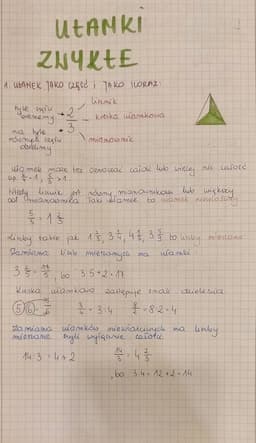 UŁAMKI
ZWYKŁE
1. UŁAMEK JAKO CZĘŚĆ I JAKO ILORAZ:
tyle części
bierzemy
2
3
licznik
kreska ułamkowa
mianownik
na tyle
równych części
dzielimy
Ułamek może też oznaczać całość lub więcej niż całość
Wtedy licznik jest równy mianownikowi lub większy
od mianownika. Taki ułamek to ułamek niewłaściwy
Liczby takie jak to liczby mieszane
Zamiana liczb mieszanych na ułamki
bo 3·5+2=17
Kreska ułamkowa zastępuje znak dzielenia
3/4 = 3:4 8/2 = 8:2 = 4
Zamiana ułamków niewłaściwych na liczby
mieszane czyli wyłączanie całości
bo 3·4=12+2=14